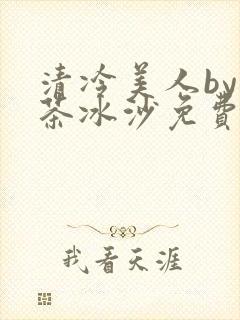 清冷美人by
茶冰沙免費
我看天涯